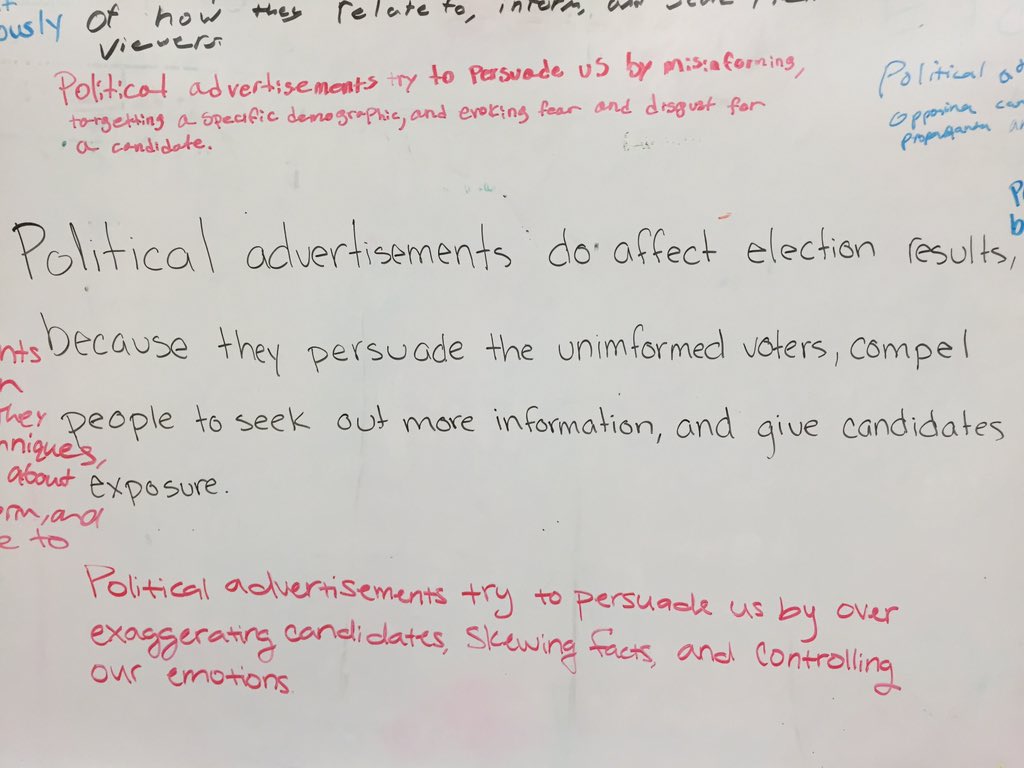 ously of how they relate to, inform, and
viewers
Political advertisements try to persuade us by misinforming,
targetting a specific demographic, and evoking fear and disgust for
a candidate.
Political
opposing
propaganda
Political advertisements do affect election results,
because they persuade the unimformed voters, compel
people to seek out more information, and give candidates
exposure.
nts
n
they
hniques,
about
orm, and
e to
Political advertisements try to persuade us by over
exaggerating candidates, skewing facts, and controlling
our emotions